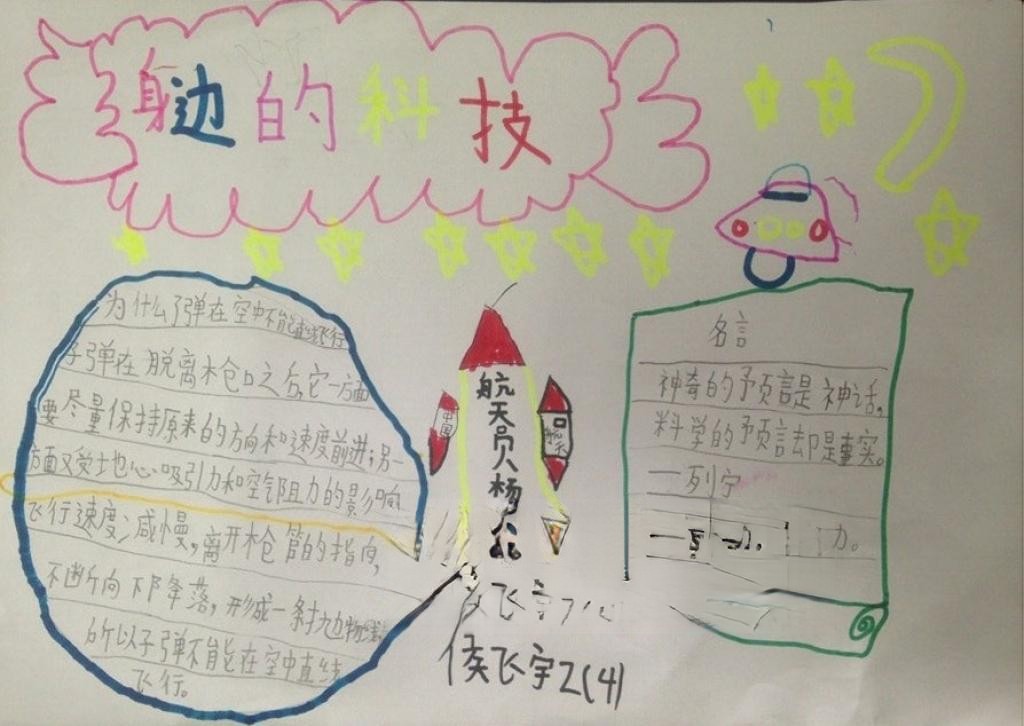 身边的科技
为什么子弹在空中不能直线飞行
子弹在脱离木仓口之后,它一方面
要尽量保持原来的方向和速度前进;另一
方面又受土也心吸引力和空气阻力的影响
飞行速度减慢,离开枪管的指向,
不断向下降落,形成一条抛物线
所以子弹不能在空中直线
飞行。
中国
航天员杨
航天
侯飞宇2(4)
名言
神奇的予言是神话,
科学的预言却是事实。
——列宁
力。